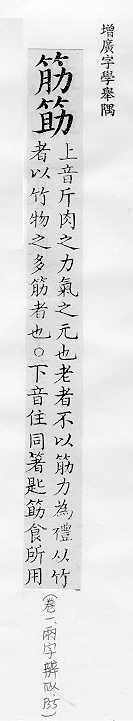 增廣字學舉隅
筋筯
上音斤肉之力氣之元也老者不以筋力為禮从竹
者以竹物之多筋者也○下音住同箸匙筯食所用
(卷一、兩字辨似、85)